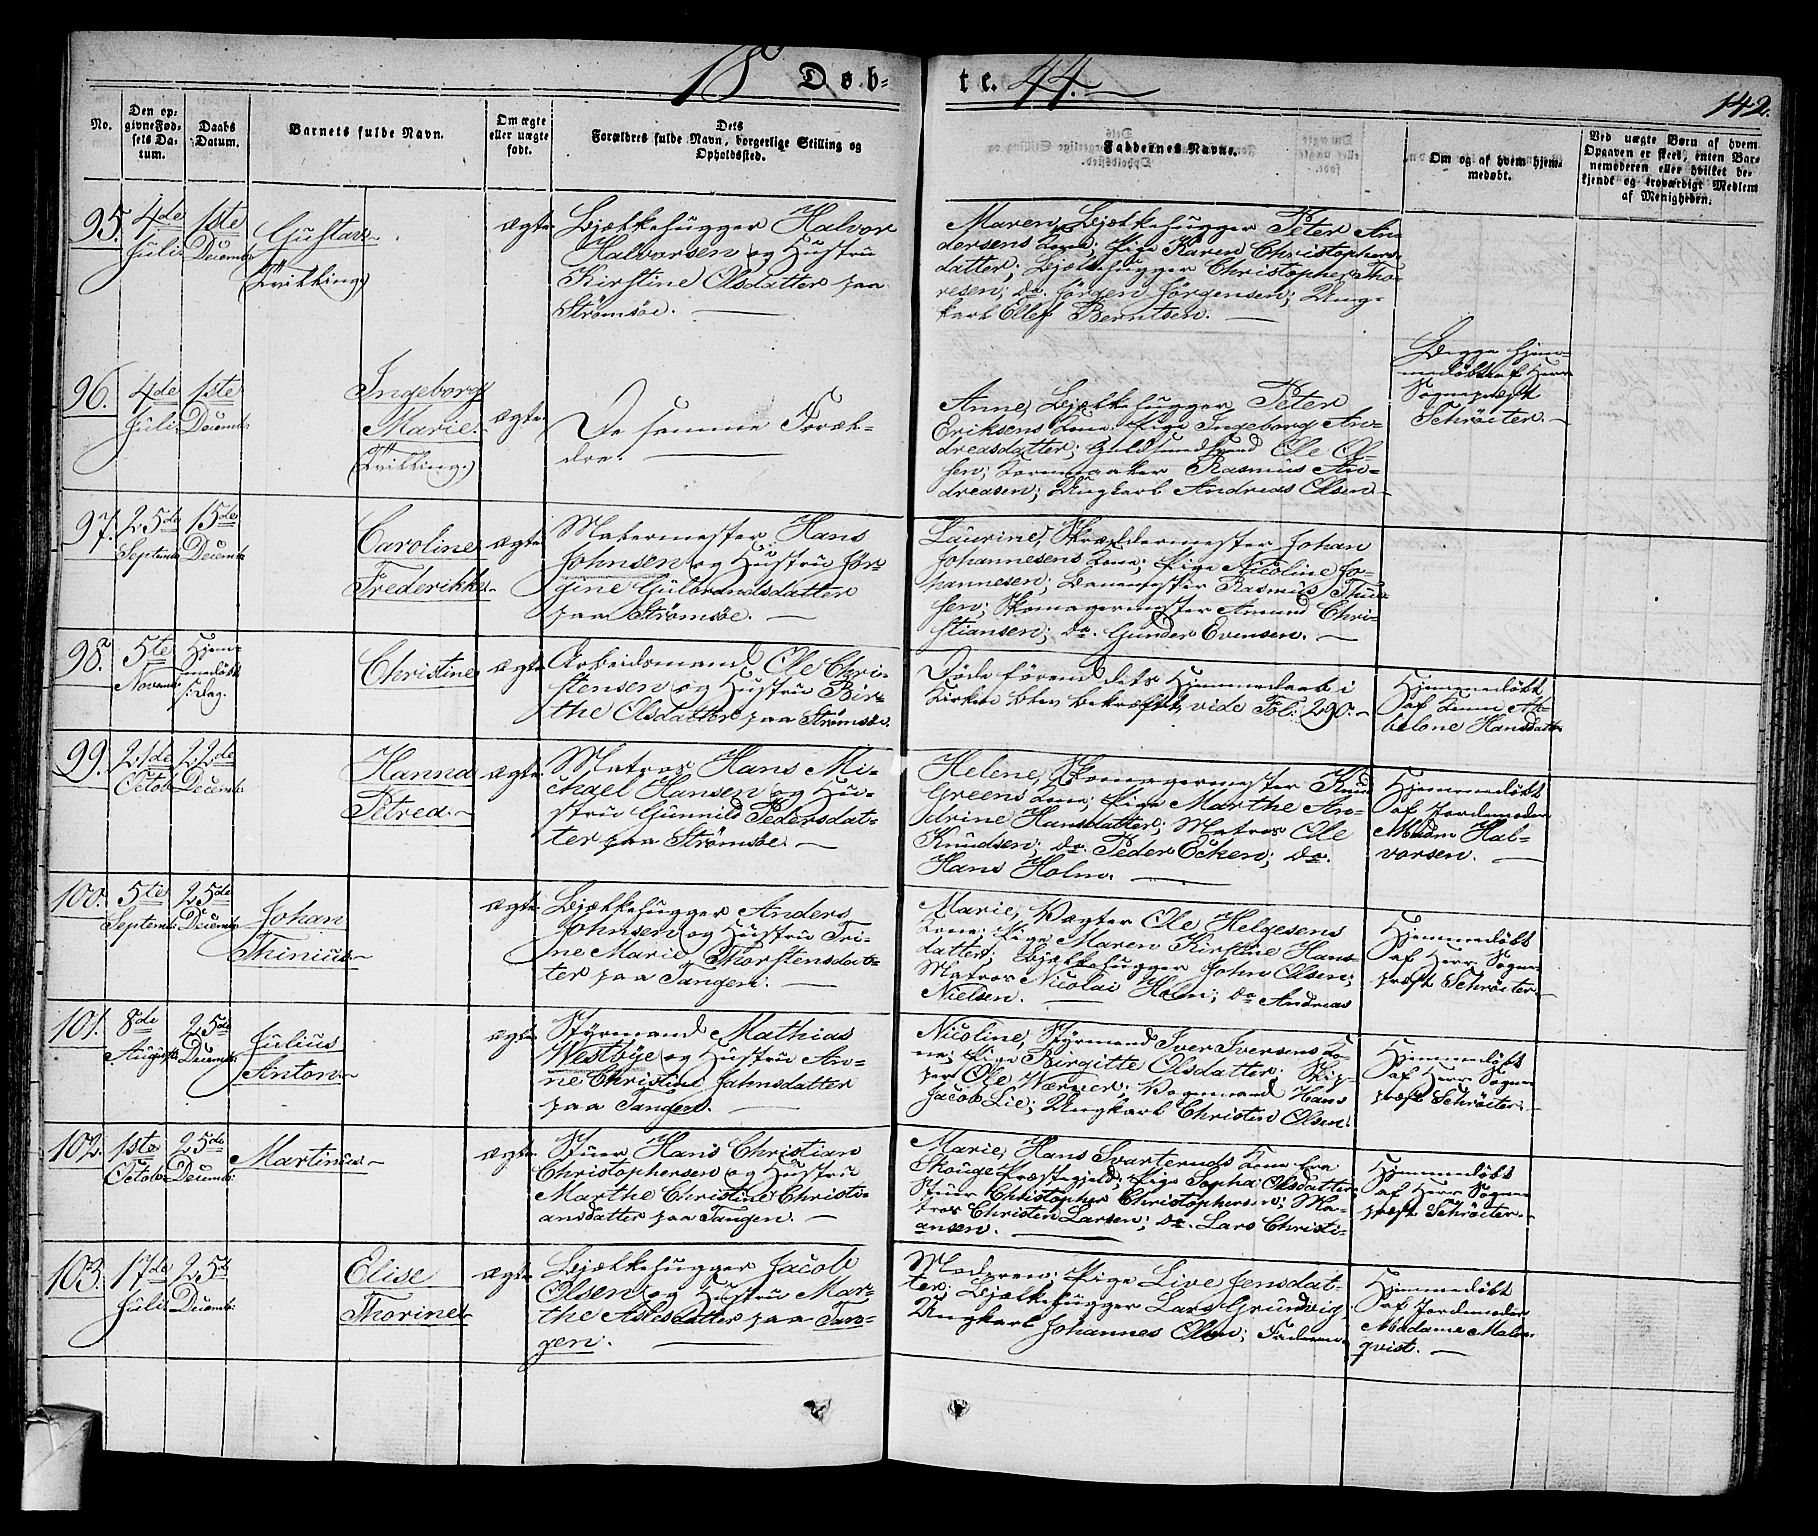 18 Døb- te. 44.
142.
No.
Den op-
givne Fød-
sels Da-
tum.
Daabs
Datum.
Barnets fulde Navn.
Om ægte
eller uægte
født.
Dets
Forældres fulde Navn, borgerlige Stilling og
Opholdssted.
Faddernes Navne.
Om og af hvem hjem-
medøbt.
Ved uægte Børn af hvem
Opgaven er skeet, enten Bar-
nemoderen eller hvilket be-
kjendt og troværdigt Medlem
af Menigheden.
95. 4de Juli 1ste Decembr
Gustav
(Tvilling)
ægte
Bjælkehugger Halvor
Halvorsen og Hustru
Kirstine Olsdatter paa
Strømsøe.
Maren, Bjælkehugger Peter An-
dersens Kone; Pige Karen Christophers-
datter; Bjælkehugger Christopher Tho-
resen; do. Jørgen Jørgensen; Ung-
karl Ellef Berntsen.
96. 4de Juli 1ste Decembr
Ingeborg
Marie
(Tvilling)
ægte
De samme Foræl-
dre.
Anne, Bjælkehugger Peter
Eriksens Kone; Pige Ingeborg An-
dreasdatter; Guldsmedsvend Ole Ol-
sen; Rasmus An-
dreasen; Ungkarl Andreas Olsen
Begge hjem-
medøbt af Herr
Sognepræst
Schrøiter.
97. 25de Septembr 15de Decembr
Caroline
Frederikke
ægte
Malermester Hans
Johnsen og Hustru Jør-
gine Gulbrandsdatter
paa Strømsøe.
Laurine, Skræddermester Johan
Johannesens Kone; Pige Nicoline Jo-
hannesen; Rasmus
sen; Skomagermester Amund Chri-
stiansen; do. Gunder Evensen.
98. 5te Novembr
Hjem-
medøbt
s. Dag.
Christine
ægte
Arbeidsmand Ole Chri-
stensen og Hustru Bir-
the Olsdatter paa Strømsøe.
Døde førend dets Hjemmedaab i
Kirken blev bekræftet, vide Fol: 290.
Hjemmedøbt
af Konen Ab-
belone Hansdatter
99. 21de Octob. 22de Decembr
Hanna
Petrea.
ægte
Matros Hans Mi-
chael Hansen og Hu-
stru Gunnild Pedersdat-
ter paa Strømsøe.
Helene, Skomagermester Knud
Greens Kone; Pige Marthe An-
drine Hansdatter; Matros Ole
Knudsen; do. Peder Ecken; do.
Hans Holm.
Hjemmedøbt
af Jordemoder
Madm Hal-
vorsen.
100. 5te Septembr 25de Decembr
Johan
Thinius
ægte
Bjælkehugger Anders
Johnsen og Hustru Tri-
ne Marie Thorstensdat-
ter paa Tangen.
Marie, Vægter Ole Helgesens
Kone; Pige Maren Kirstine Hans-
datter; Bjælkehugger John Olsen;
Matros Nicolai Holm; do Andreas
Nielsen.
Hjemmedøbt
af Herr Sogne-
præst Schrøiter
101. 8de August 25de Decembr
Julius
Anton
ægte
Styrmand Mathias
Westbye og Hustru An-
ne Christine Jahnsdatter
paa Tangen.
Nicoline, Styrmand Iver Iversens Ko-
ne; Pige Birgitte Olsdatter; Skip-
per Ole Wærner; Vognmand Hans
Jacob Lie; Ungkarl Christen Olsen.
Hjemmedøbt
af Herr Sogne-
præst Schrøiter.
102. 1ste Octob. 25de Decembr
Martinus
ægte
Stuer Hans Christian
Christophersen og Hustru
Marthe Christine Christi-
ansdatter paa Tangen.
Marie, Hans Svarteruds Kone fra
Skouger Præstegjeld; Pige Sophia Olsdatter;
Stuer Christopher Christophersen; Ma-
tros Christen Larsen; do. Lars Christi-
ansen.
Hjemmedøbt
af Herr Sogne-
præst Schrøiter.
103. 17de Juli 25de Decembr
Elise
Thorine
ægte
Bjælkehugger Jacob
Olsen og Hustru Mar-
the Aslesdatter paa Tan-
gen.
Moderen; Pige Live Jensdat-
ter; Bjælkehugger Lars Grundvig
Ungkarl Johannes Olsen; Faderen
Hjemmedøbt
af Jordemoder
Madame Malm-
qvist.